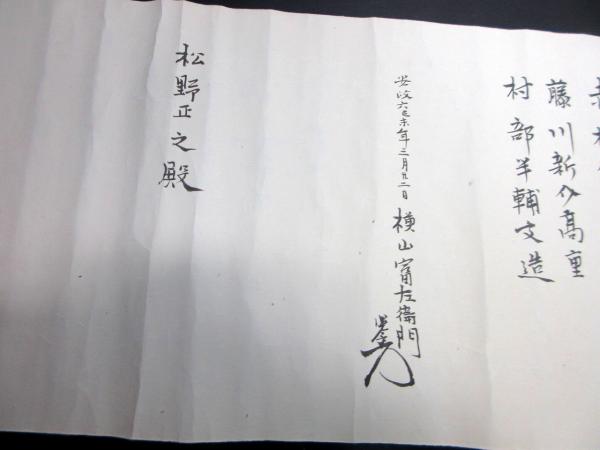 赤松
藤川新介高重
村部半輔文造
安政六己未年三月廿二日 横山甯左衛門
松野正之殿